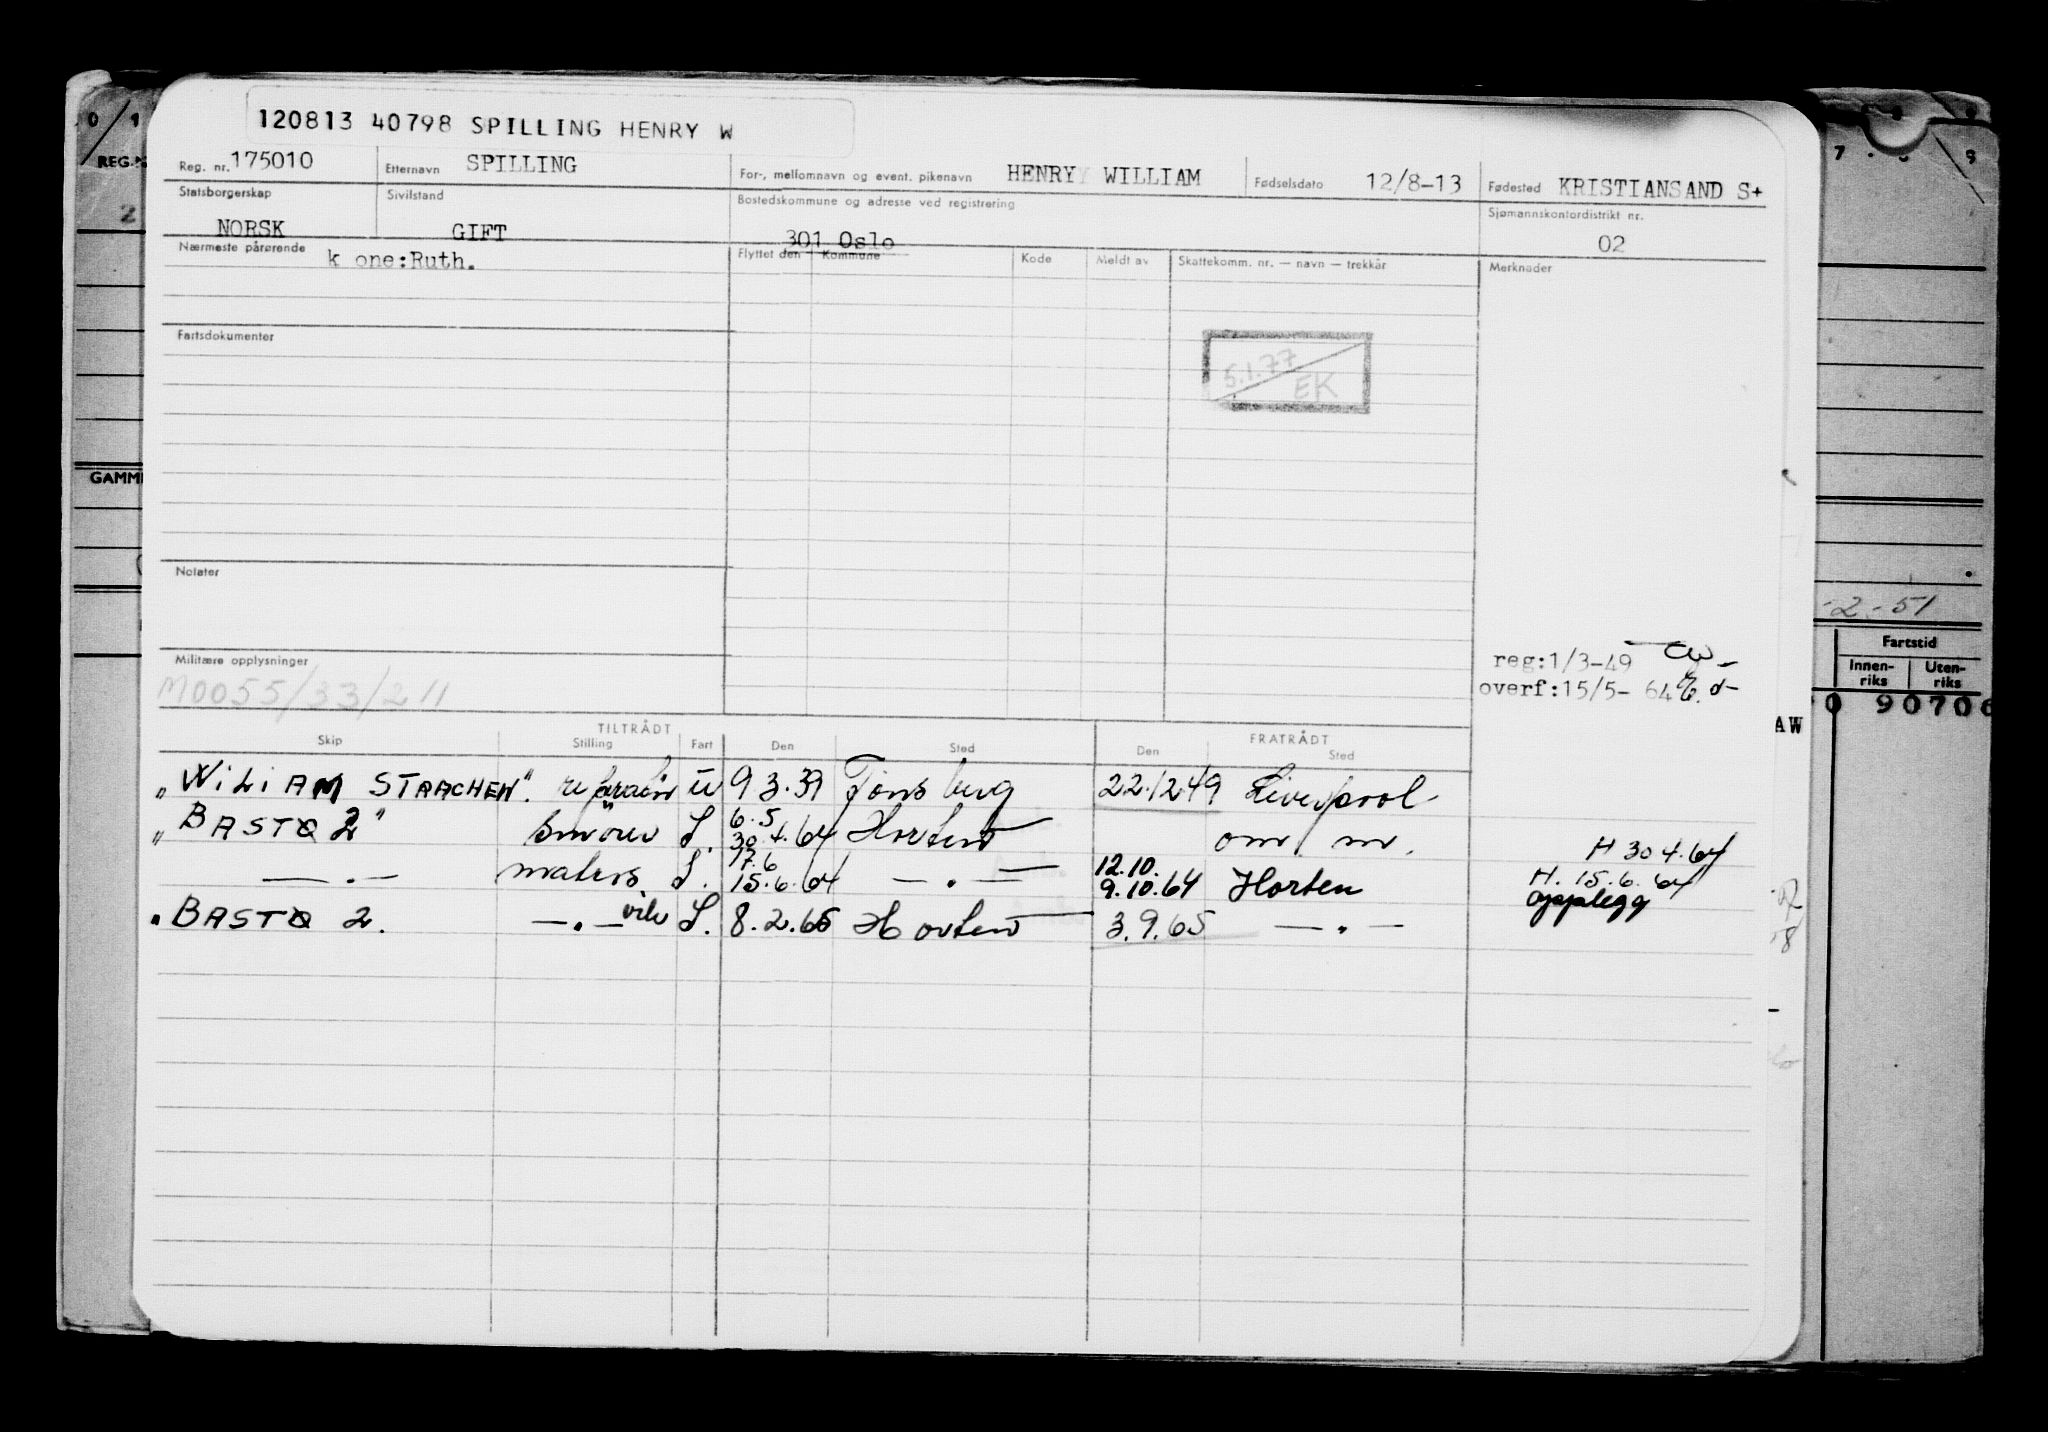 120813 40798 SPILLING HENRY W
Reg. nr. 175010 Etternavn SPILLING For-, mellomnavn og event. pikenavn HENRY WILLIAM Fødselsdato 12/8-13 Fødested KRISTIANSAND S+
Statsborgerskap Sivilstand Bostedskommune og adresse ved registrering Sjømannskontordistrikt nr.
NORSK GIFT 301 Oslo 02
Nærmeste pårørende k one:Ruth. Flyttet den Kommune Kode Meldt av Skattekomm. nr. — navn — trekkår Merknader
Fartsdokumenter
5.1.77
EK
Notater
Militære opplysninger
M0055/33/211
reg:1/3-49
overf:15/5- 64
TILTRÅDT FRATRÅDT
Skip Stilling Fart Den Sted Den Sted
"WILIAM STRACHEN". u 9 3.39 Tønsberg 22.12.49 Liverpool
"BASTØ 2" smører I. 6.5 30.4.64 Horten om m. H 30 4.64
— . — matros I. 17.6 15.6.64 — . — 12.10. 9.10.64 Horten H. 15.6.64 opplegg
"BASTØ 2. — . — vik I. 8.2.65 Horten 3.9.65 — . —
0 1
REG.N
2
GAMM
7 . 8 9
-2-51
Fartstid
Innen-riks Uten-riks
0 9070
AW